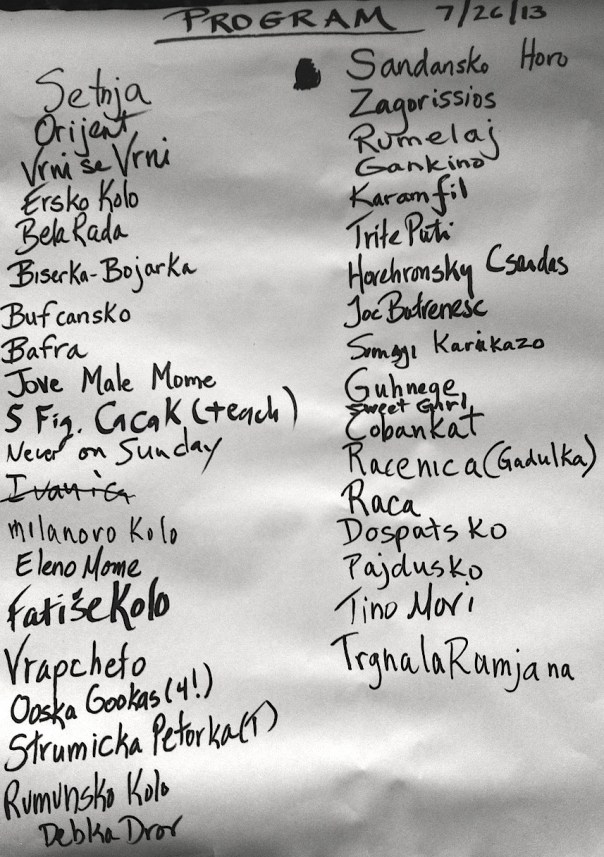 PROGRAM 7/26/13
Setnja
Orijent
Vrni se Vrni
Ersko Kolo
Bela Rada
Biserka-Bojarka
Bufcansko
Bafra
Jove Male Mome
5 Fig. Cacak (+teach)
Never on Sunday
Ivanica
Milanovo Kolo
Eleno Mome
Fatiše Kolo
Vrapcheto
Ooska Gookas (4!)
Strumicka Petorka (T)
Rumunsko Kolo
Debka Dror
Sandansko Horo
Zagorissios
Rumelaj
Gankino
Karamfil
Trite Puti
Horehronsky Csardas
Joc Batrenesc
Somogyi Karikazo
Guhnege
Sweet Girl
Cobankat
Racenica (Gadulka)
Raca
Dospatsko
Pajdusko
Tino Mori
Trgnala Rumjana